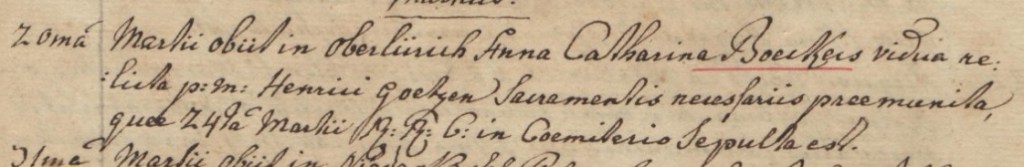 Martius.
20mâ Martii obiit in oberliirich Anna Catharina Boeckers vidua re:
:licta p: m: Henrici Goetzen Sacramentis necessariis praemunita,
quae 24tâ Martii in Coemiterio Sepulta est.
31mâ Martii obiit in